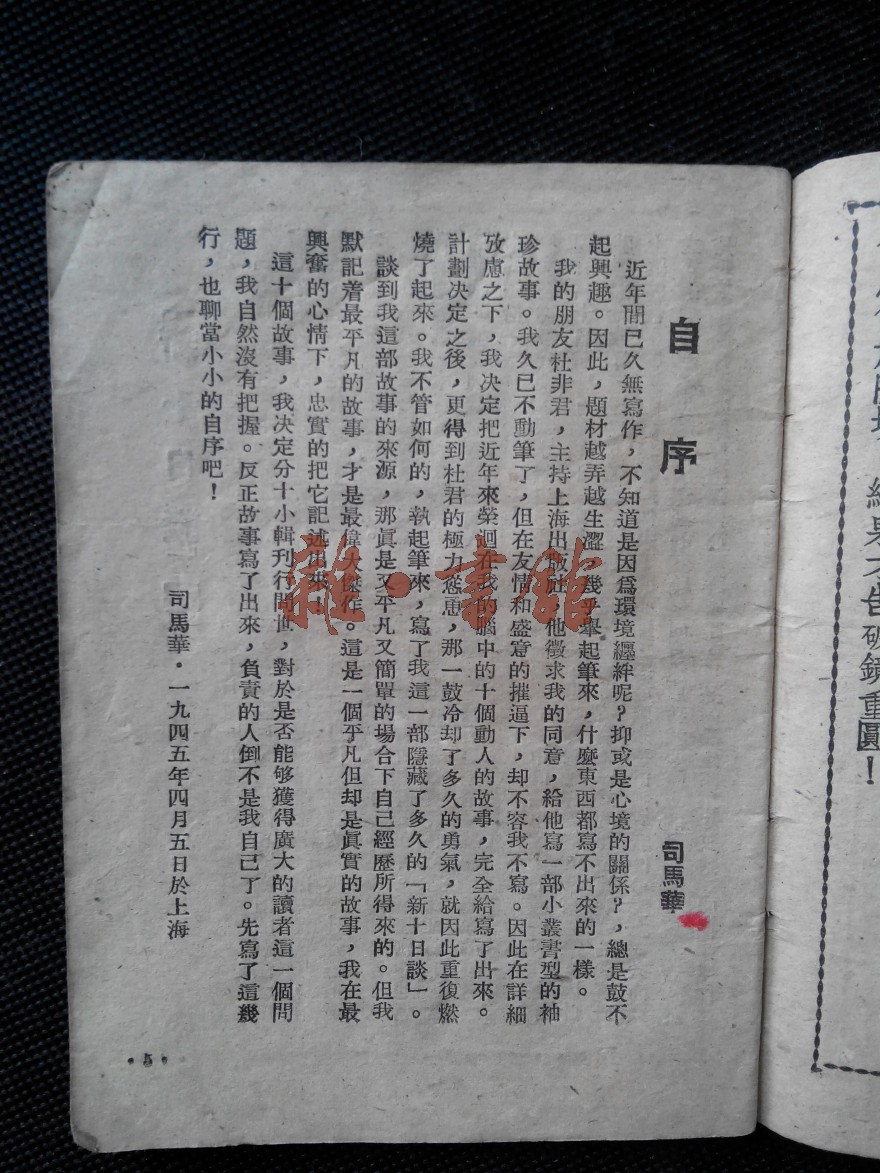 結果才告破鏡重圓！
自序
司馬華
近年間已久無寫作，不知道是因爲環境纏絆呢？抑或是心境的關係？，總是鼓不
起興趣。因此，題材越弄越生澀，幾乎舉起筆來，什麼東西都寫不出來的一樣。
我的朋友杜非君，主持上海出版社，他徵求我的同意，給他寫一部小叢書型的袖
珍故事。我久已不動筆了，但在友情和盛意的摧逼下，却不容我不寫。因此在詳細
攷慮之下，我决定把近年來榮洄在我的腦中的十個動人的故事，完全給寫了出來。
計劃决定之後，更得到杜君的極力慫恿，那一鼓冷却了多久的勇氣，就因此重復燃
燒了起來。我不管如何的，執起筆來，寫了我這一部隱藏了多久的「新十日談」。
談到我這部故事的來源，那眞是又平凡又簡單的場合下自己經歷所得來的。但我
默記着最平凡的故事，才是最偉大傑作。這是一個平凡但却是眞實的故事，我在最
興奮的心情下，忠實的把它記述出來！
這十個故事，我决定分十小輯刊行問世，對於是否能够獲得廣大的讀者這一個問
題，我自然沒有把握。反正故事寫了出來，負責的人倒不是我自己了。先寫了這幾
行，也聊當小小的自序吧！
司馬華·一九四五年四月五日於上海
·5·
雜·書館